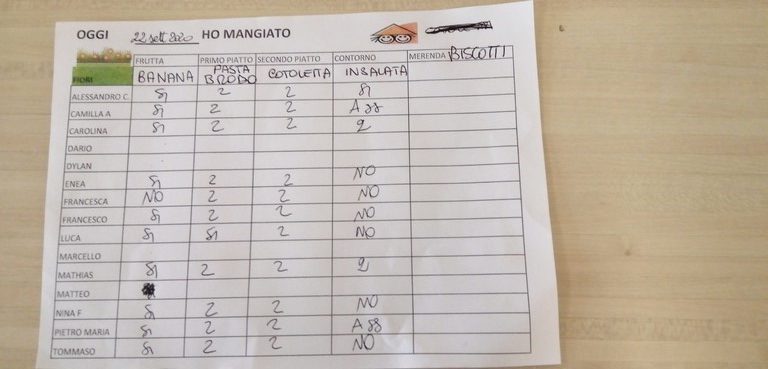 OGGI 22 sett. 2020 HO MANGIATO
FRUTTA PRIMO PIATTO SECONDO PIATTO CONTORNO MERENDA BISCOTTI
FIORI BANANA PASTA BRODO COTOLETTA INSALATA
ALESSANDRO C. Si 2 2 Si
CAMILLA A Si 2 2 Ass
CAROLINA Si 2 2 2
DARIO
DYLAN
ENEA Si 2 2 NO
FRANCESCA NO 2 2 NO
FRANCESCO Si 2 2 NO
LUCA Si Si 2 NO
MARCELLO
MATHIAS Si 2 2 2
MATTEO
NINA F Si 2 2 NO
PIETRO MARIA Si 2 2 Ass
TOMMASO Si 2 2 NO